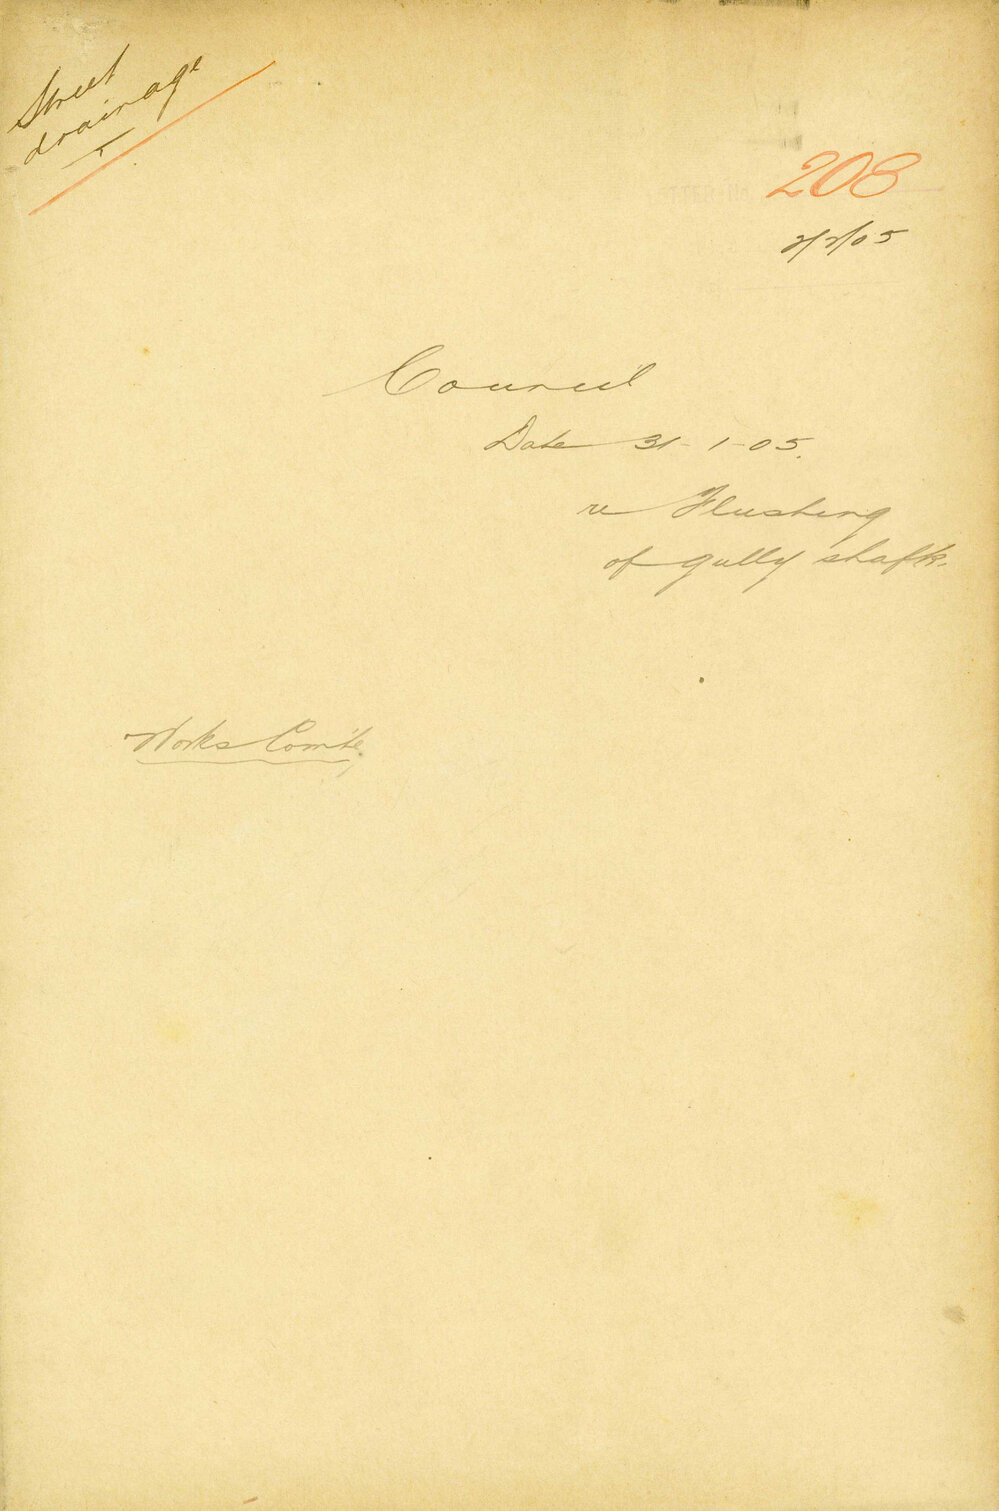 Street
drainage
208
2/2/05
Council
Date 31-1-05.
re Flushing
of gully shafts.
Works Comte.